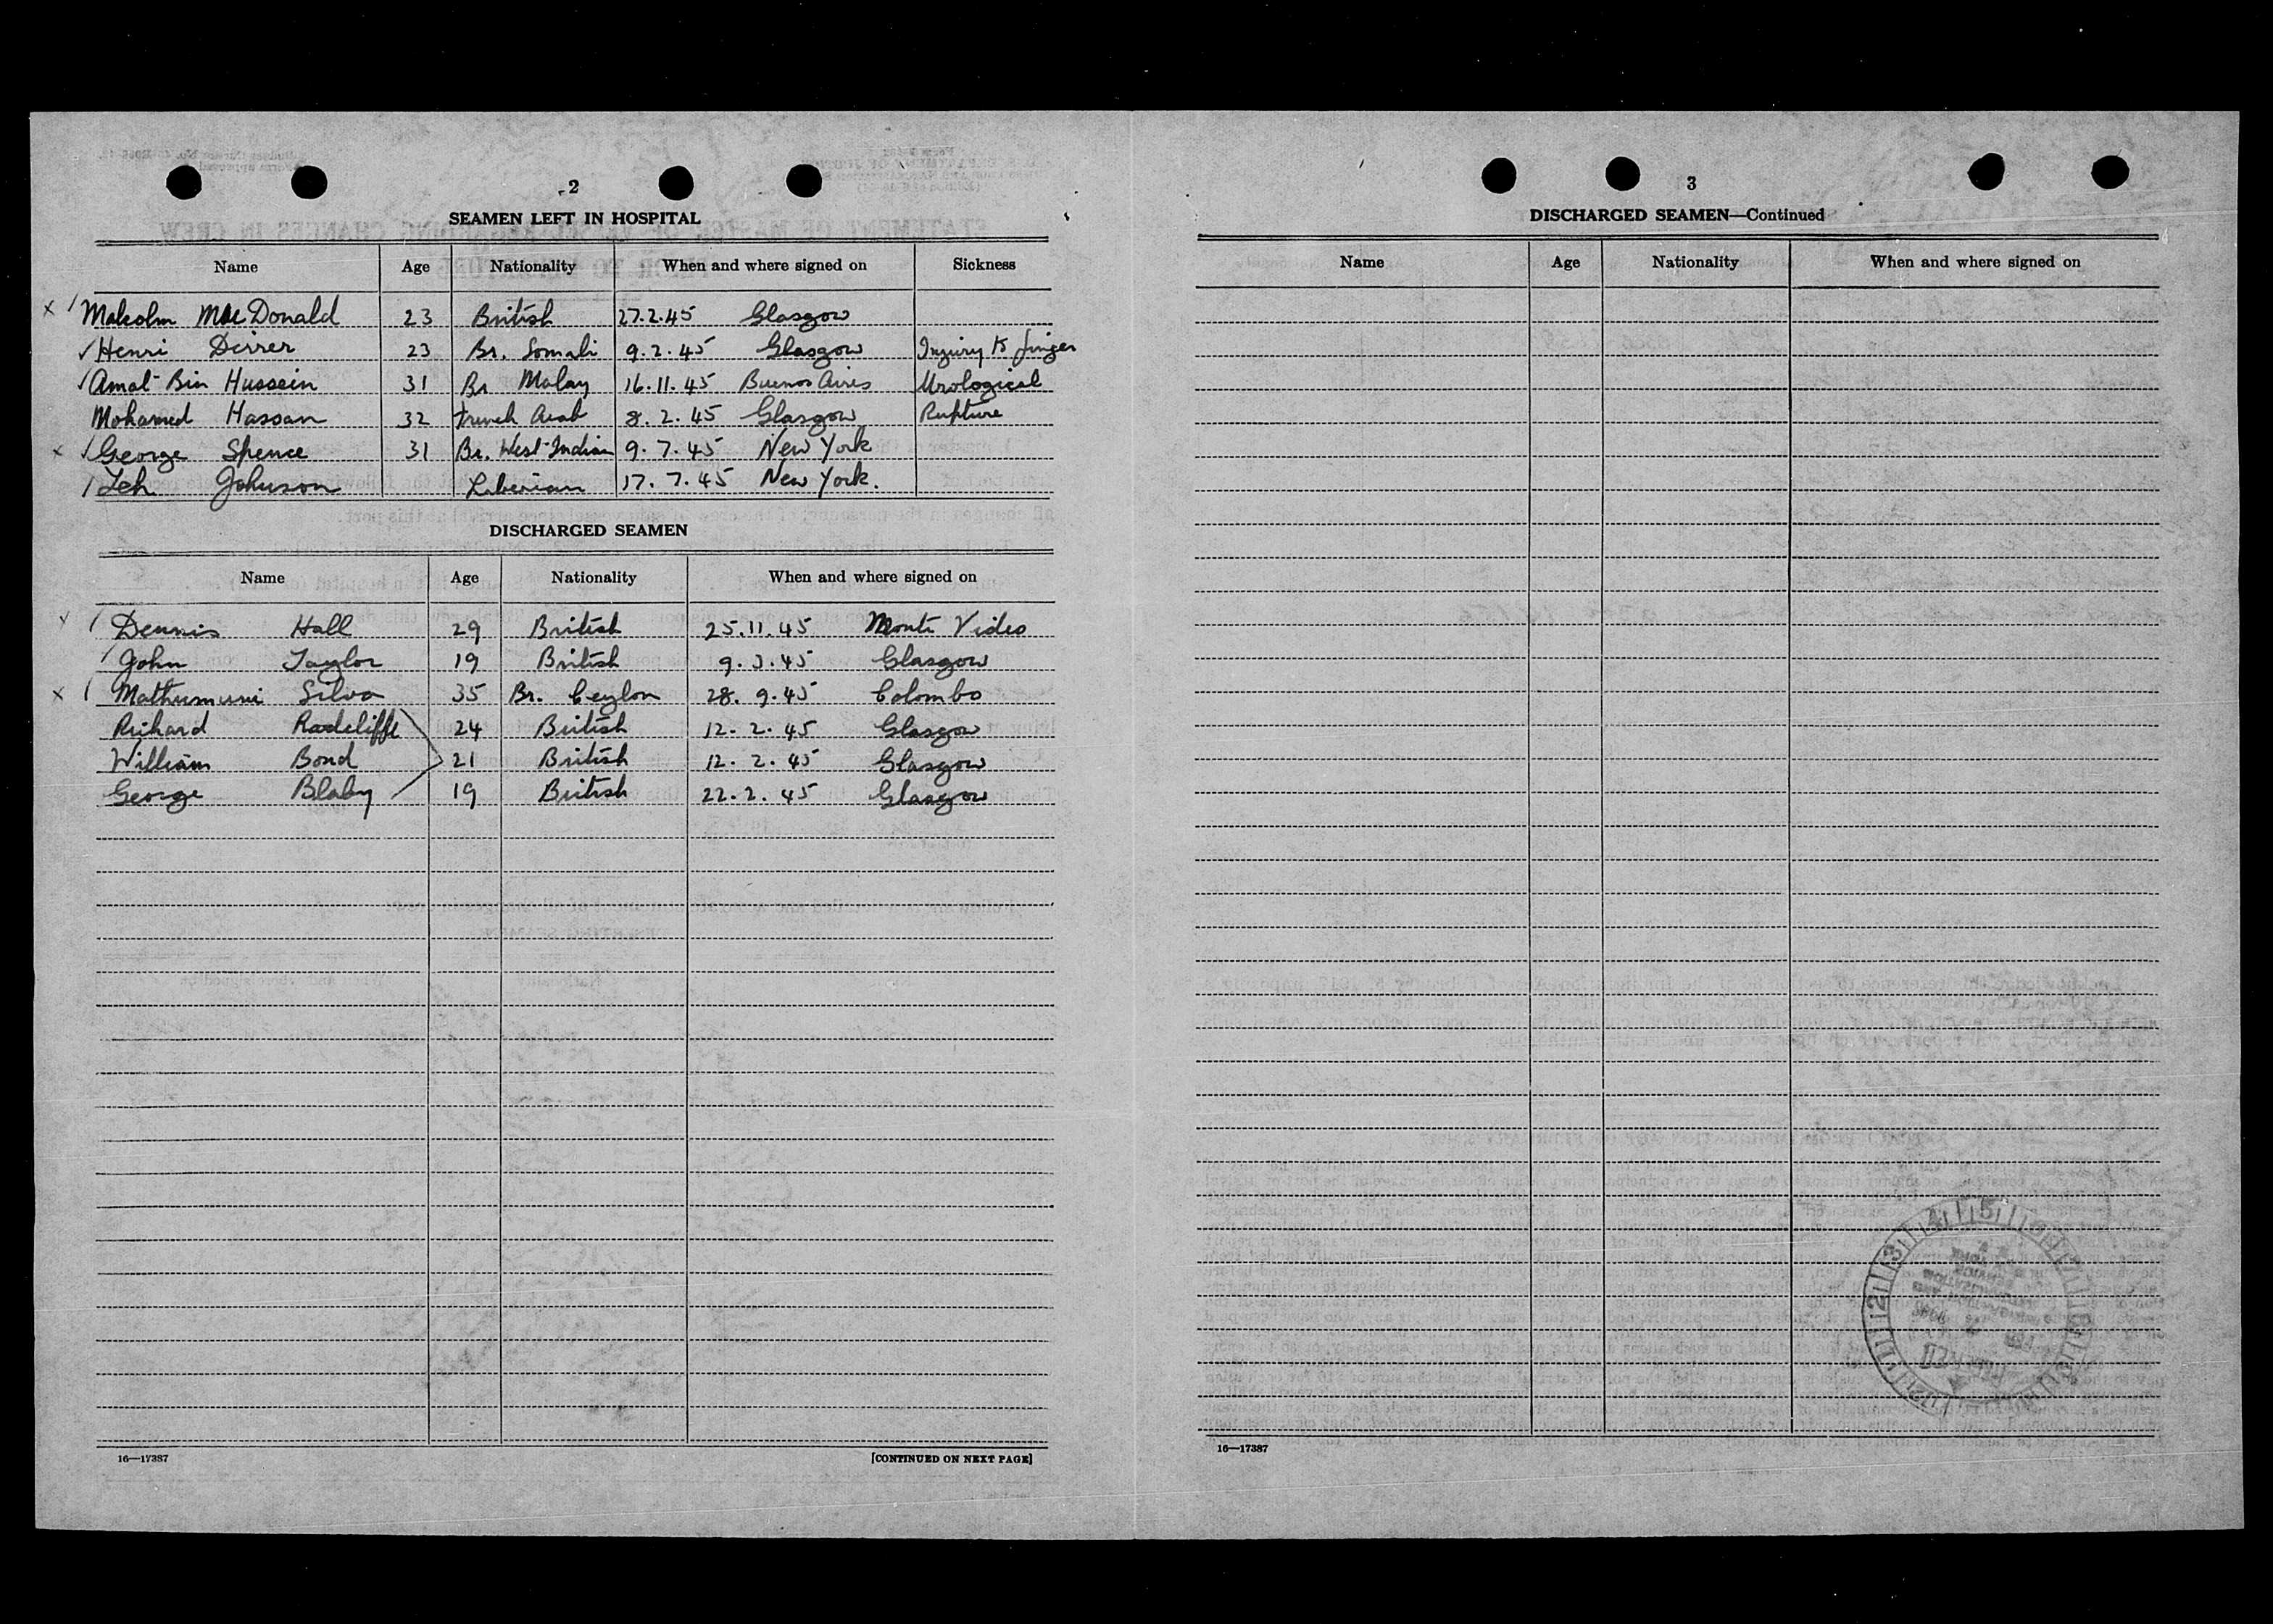 2
SEAMEN LEFT IN HOSPITAL
Name Age Nationality When and where signed on Sickness
x / Malcolm MacDonald 23 British 27.2.45 Glasgow
✓ Henri Dirrer 23 Br. Somali 9.2.45 Glasgow Injury to finger
✓ Amat Bin Hussein 31 Br Malay 16.11.45 Buenos Aires Urological
Mohamed Hassan 32 French Arab 8.2.45 Glasgow Rupture
x ✓ George Spence 31 Br. West Indian 9.7.45 New York
/ Zeh Johnson Liberian 17.7.45 New York.
DISCHARGED SEAMEN
Name Age Nationality When and where signed on
✓ / Dennis Hall 29 British 25.11.45 Monte Video
/ John Taylor 19 British 9.3.45 Glasgow
x / Mathumuni Silva 35 Br. Ceylon 28.9.45 Colombo
Richard Radcliffe 24 British 12.2.45 Glasgow
William Bond 21 British 12.2.45 Glasgow
George Blaby 19 British 22.2.45 Glasgow
16—17387 [CONTINUED ON NEXT PAGE]
3
DISCHARGED SEAMEN—Continued
Name Age Nationality When and where signed on
16—17387